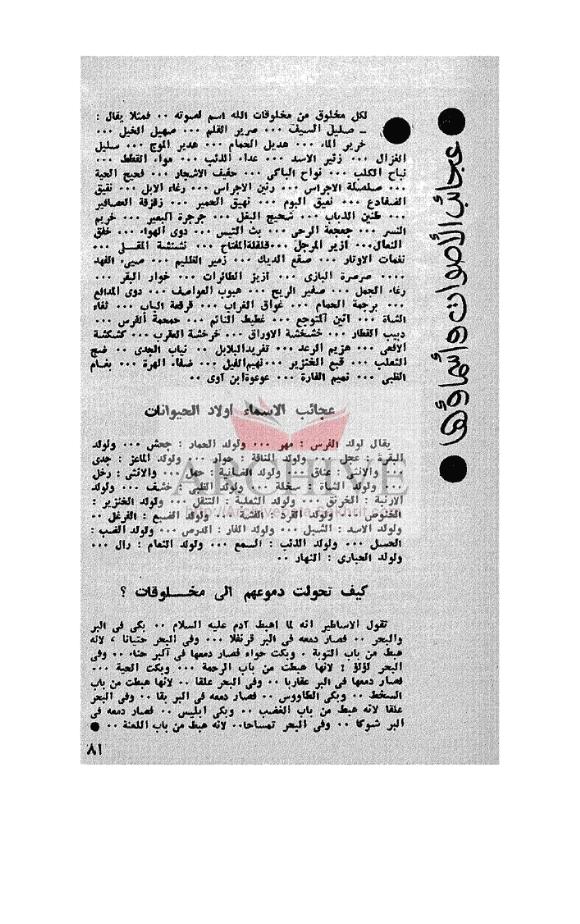 عجائب الأصوات وأسماؤها
لكل مخلوق من مخلوقات الله اسم لصوته ٠٠ فمثلا يقال :
ــ صليل السيف ٠٠٠ صرير القلم ٠٠٠ صهيل الخيل ٠٠٠
خرير الماء ٠٠٠ هديل الحمام ٠٠٠ هدير الموج ٠٠٠ سليل
الغزال ٠٠٠ زئير الاسد ٠٠٠ عداء الذئب ٠٠٠ مواء القطط ٠٠٠
نباح الكلب ٠٠٠ نواح الباكى ٠٠٠ حفيف الاشجار ٠٠٠ فحيح الحية
٠٠٠ صلصلة الاجراس ٠٠٠ رنين الاجراس ٠٠٠ رغاء الابل ٠٠٠ نقيق
الضفادع ٠٠٠ نعيق البوم ٠٠٠ نهيق الحمير ٠٠٠ زقزقة العصافير
٠٠٠ طنين الذباب ٠٠٠ شحيج البغل ٠٠٠ جرجرة البعير ٠٠٠ خريم
النسر ٠٠٠ جعجعة الرحى ٠٠٠ بث التيس ٠٠٠ دوى الهواء ٠٠٠ خفق
النعال ٠٠٠ ازير المرجل ٠٠٠ قلقلة المفتاح ٠٠٠ نشنشة المقل ٠٠٠
نغمات الاوتار ٠٠٠ صقع الديك ٠٠٠ زمير الظليم ٠٠٠ صيى الفهد
٠٠٠ صرصرة البازى ٠٠٠ ازيز الطائرات ٠٠٠ خوار البقر ٠٠٠
رغاء الجمل ٠٠٠ صفير الريح ٠٠٠ هبوب العواصف ٠٠٠ دوى المدافع
٠٠٠ برجمة الحمام ٠٠٠ غواق الغراب ٠٠٠ قرقعة الباب ٠٠٠ ثغاء
الشاة ٠٠٠ انين المتوجع ٠٠٠ غطيط النائم ٠٠٠ حمحمة الفرس ٠٠٠
دبيب القطار ٠٠٠ خشخشة الاوراق ٠٠٠ خرخشة العقرب ٠٠ كشكشة
الافعى ٠٠٠ هزيم الرعد ٠٠٠ تغريد البلابل ٠٠ نباب الجدى ٠٠ ضبح
الثعلب ٠٠٠ قبع الخنزير ٠٠٠ نهيم الفيل ٠٠٠ ضغاء الهرة ٠٠٠ بغام
الظبى ٠٠٠ نميم الفارة ٠٠٠ عوعوة ابن آوى ٠٠
عجائب الاسماء اولاد الحيوانات
يقال لولد الفرس : مهر ٠٠٠ ولولد الحمار : جحش ٠٠٠ ولولد
البقرة : عجل ٠٠٠ ولولد الناقة : حوار ٠٠٠ ولولد الماعز : جدى
٠٠٠ والانثى : عناق ٠٠٠ ولولد الضانية : حمل ٠٠٠ والانثى : رخل
٠٠٠ ولولد الشاة : سخلة ٠٠٠ ولولد الظبى : خشف ٠٠٠ ولولد
الارنبة : الخرنق ٠٠٠ ولولد الثعلبة : التتفل ٠٠٠ ولولد الخنزير :
الخنوص ٠٠٠ ولولد القرد : القشة ٠٠٠ ولولد الضبع : الفرغل ٠٠
ولولد الاسد : الشبل ٠٠٠ ولولد الفار : الدرص ٠٠٠ ولولد الضب :
الحسل ٠٠٠ ولولد الذئب : السمع ٠٠٠ ولولد النعام : رال ٠٠٠
ولولد الحبارى : النهار ٠٠
ARCHIVE
كيف تحولت دموعهم الى مخـــلوقات ؟
تقول الاساطير انه لما اهبط آدم عليه السلام ٠٠ بكى فى البر
والبحر ٠٠ فصار دمعه فى البر قرنفلا ٠٠٠ وفى البحر حيتانا ، لانه
هبط من باب التوبة ٠ وبكت حواء فصار دمعها فى البر حناء ٠٠ وفى
البحر لؤلؤ ; لانها هبطت من باب الرحمة ٠٠٠ وبكت الحية ٠٠٠
فصار دمعها فى البر عقاربا ٠٠ وفى البحر علقوا ٠٠ لانها هبطت من باب
السخط ٠٠ وبكى الطاووس ٠٠ فصار دمعه فى البر بقا ٠٠ وفى البحر
علقا لانه هبط من باب الغضب ٠٠ وبكى ابليس ٠٠ فصار دمعه فى
البر شوكا ٠٠ وفى البحر تمساحا٠٠ لانه هبط من باب اللعنة ٠٠ ●
٨١